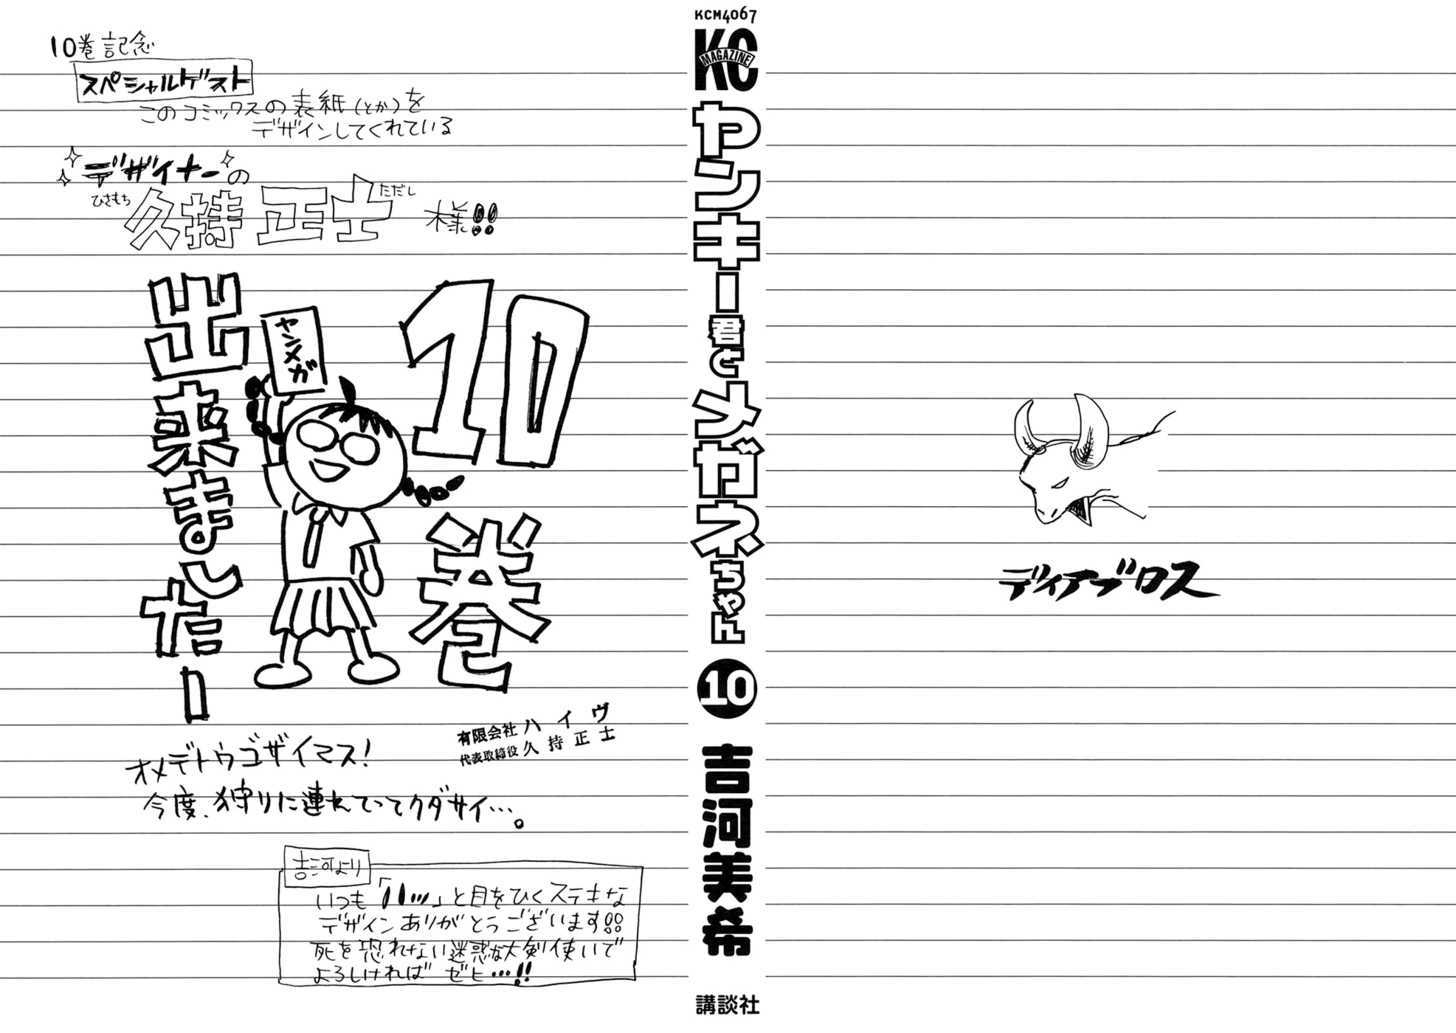 10巻記念
スペシャルゲスト
このコミックスの表紙(とか)を
デザインしてくれている
デザイナーの
ひさもち ただし
久持 正士 様!!
10巻
出来ましたー
ヤンメガ
オメデトウゴザイマス!
今度、狩りに連れてってクダサイ…。
有限会社 ハイヴ
代表取締役 久持正士
吉河より
いつも「ハッ」と目をひくステキな
デザインありがとうございます!!
死を恐れない迷惑な大剣使いで
よろしければ ゼヒ…!!
KCM4067
KC
MAGAZINE
ヤンキー君とメガネちゃん
10
吉河美希
講談社
ディアブロス